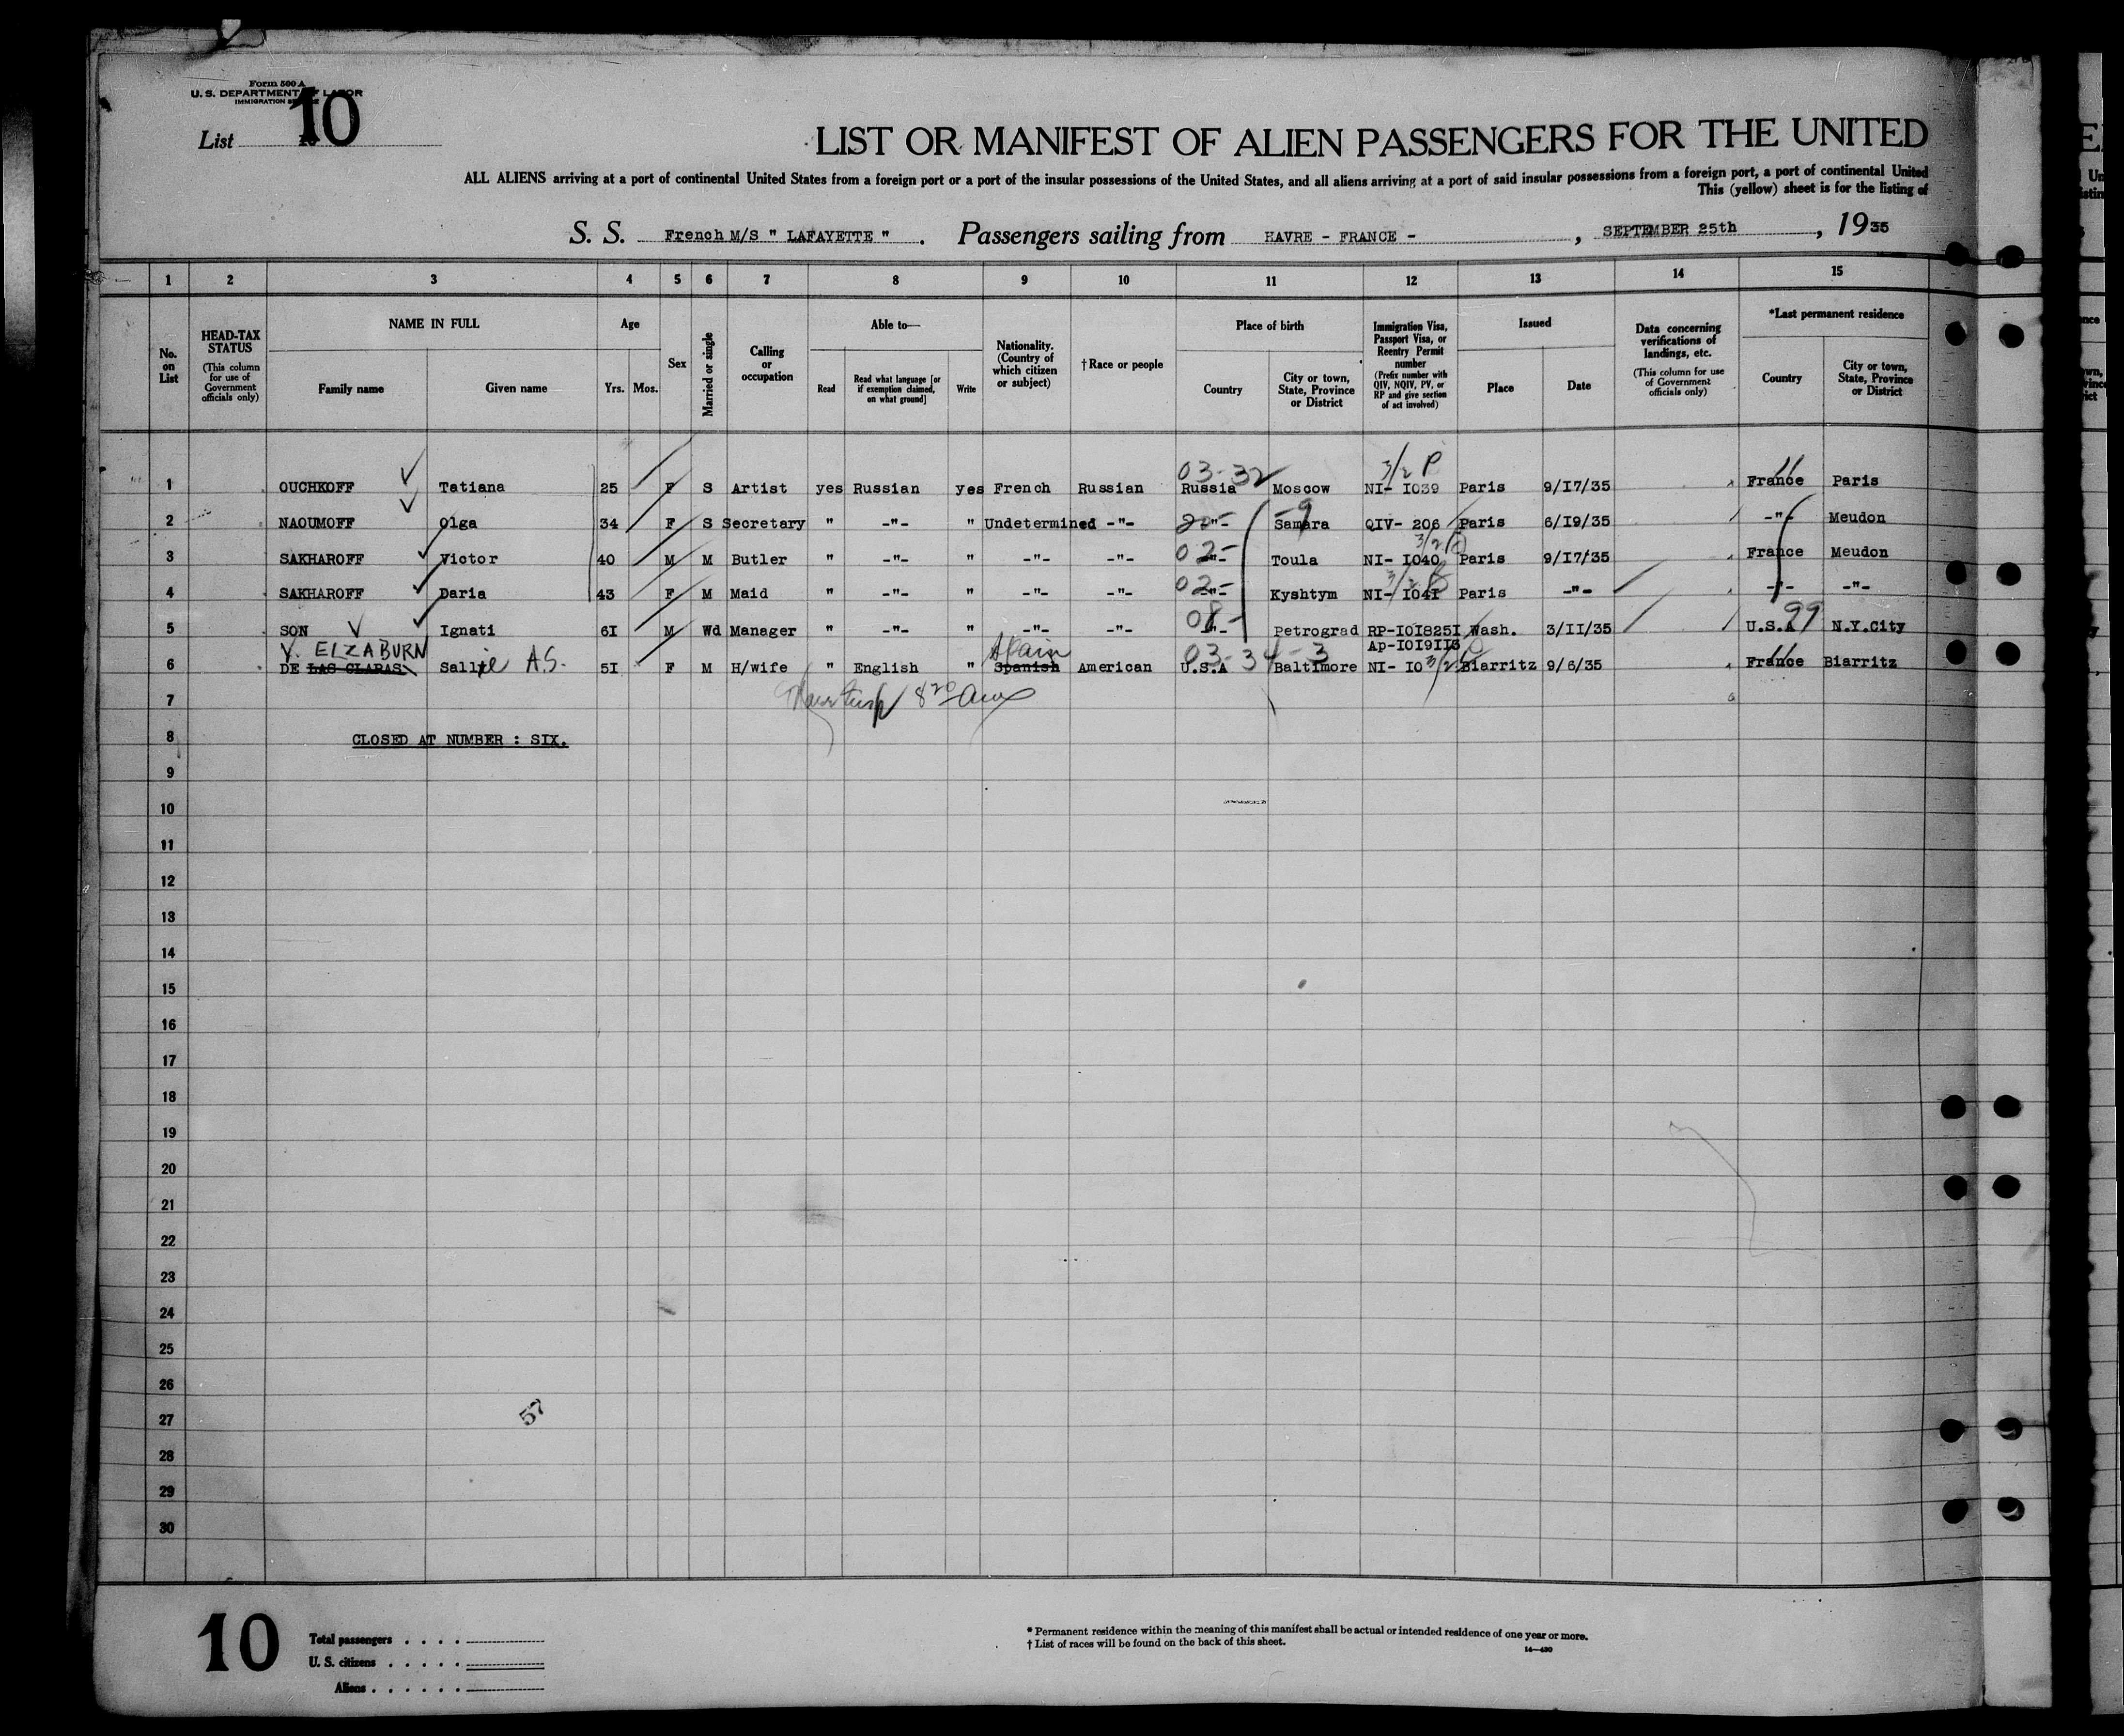 Form 500 A
U. S. DEPARTMENT OF LABOR
IMMIGRATION SERVICE
List 10
LIST OR MANIFEST OF ALIEN PASSENGERS FOR THE UNITED
ALL ALIENS arriving at a port of continental United States from a foreign port or a port of the insular possessions of the United States, and all aliens arriving at a port of said insular possessions from a foreign port, a port of continental United
This (yellow) sheet is for the listing of
S. S. French M/S " LAFAYETTE " . Passengers sailing from HAVRE - FRANCE - , SEPTEMBER 25th , 1935
1 2 3 4 5 6 7 8 9 10 11 12 13 14 15
No. on List
HEAD-TAX STATUS (This column for use of Government officials only)
NAME IN FULL
Family name Given name
Age
Yrs. Mos.
Sex
Married or single
Calling or occupation
Able to—
Read Read what language [or if exemption claimed, on what ground] Write
Nationality. (Country of which citizen or subject)
†Race or people
Place of birth
Country City or town, State, Province or District
Immigration Visa, Passport Visa, or Reentry Permit number (Prefix number with QIV, NQIV, PV, or RP and give section of act involved)
Issued
Place Date
Data concerning verifications of landings, etc. (This column for use of Government officials only)
*Last permanent residence
Country City or town, State, Province or District
03-32 3/2 P
1 OUCHKOFF Tatiana 25 F S Artist yes Russian yes French Russian Russia Moscow NI- I039 Paris 9/I7/35 France Paris
2 NAOUMOFF Olga 34 F S Secretary " -"- " Undetermined -"- -"- Samara QIV- 206 Paris 6/I9/35 -"- Meudon
3 SAKHAROFF Victor 40 M M Butler " -"- " -"- -"- 02- Toula NI- I040 Paris 9/I7/35 France Meudon
4 SAKHAROFF Daria 43 F M Maid " -"- " -"- -"- 02- Kyshtym NI- I04I Paris -"- -"- -"-
5 SON Ignati 6I M Wd Manager " -"- " -"- -"- -"- Petrograd RP-I0I825I Wash. 3/II/35 U.S.A 99 N.Y.City
V. ELZABURN Spain 03-34-3 Ap-I0I9II3
6 DE LAS CLARAS Sallie A.S. 5I F M H/wife " English " Spanish American U.S.A Baltimore NI- I0 3/2 Biarritz 9/6/35 France Biarritz
7
8 CLOSED AT NUMBER : SIX.
9
10
11
12
13
14
15
16
17
18
19
20
21
22
23
24
25
26
27 57
28
29
30
10
Total passengers . . . .
U. S. citizens . . . . .
Aliens . . . . . .
* Permanent residence within the meaning of this manifest shall be actual or intended residence of one year or more.
† List of races will be found on the back of this sheet.
14—430